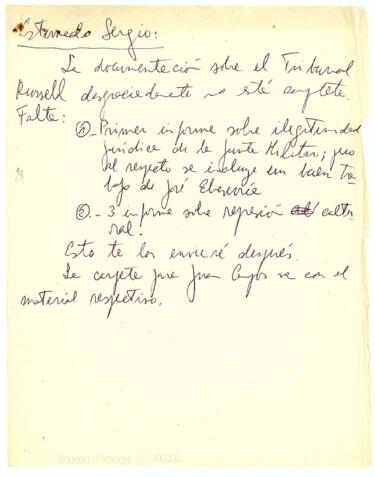 Estimado Sergio:
La documentación sobre el Tribunal
Russell desgraciadamente no está completa.
Falta:
①- Primer informe sobre ilegitimidad
jurídica de la Junta Militar; pero
al respecto se incluye un buen tra-
bajo de José
②- 3 informe sobre represión cultu-
ral.
Esto te los enviaré después.
La carpeta para Juan Campos va con el
material respectivo.